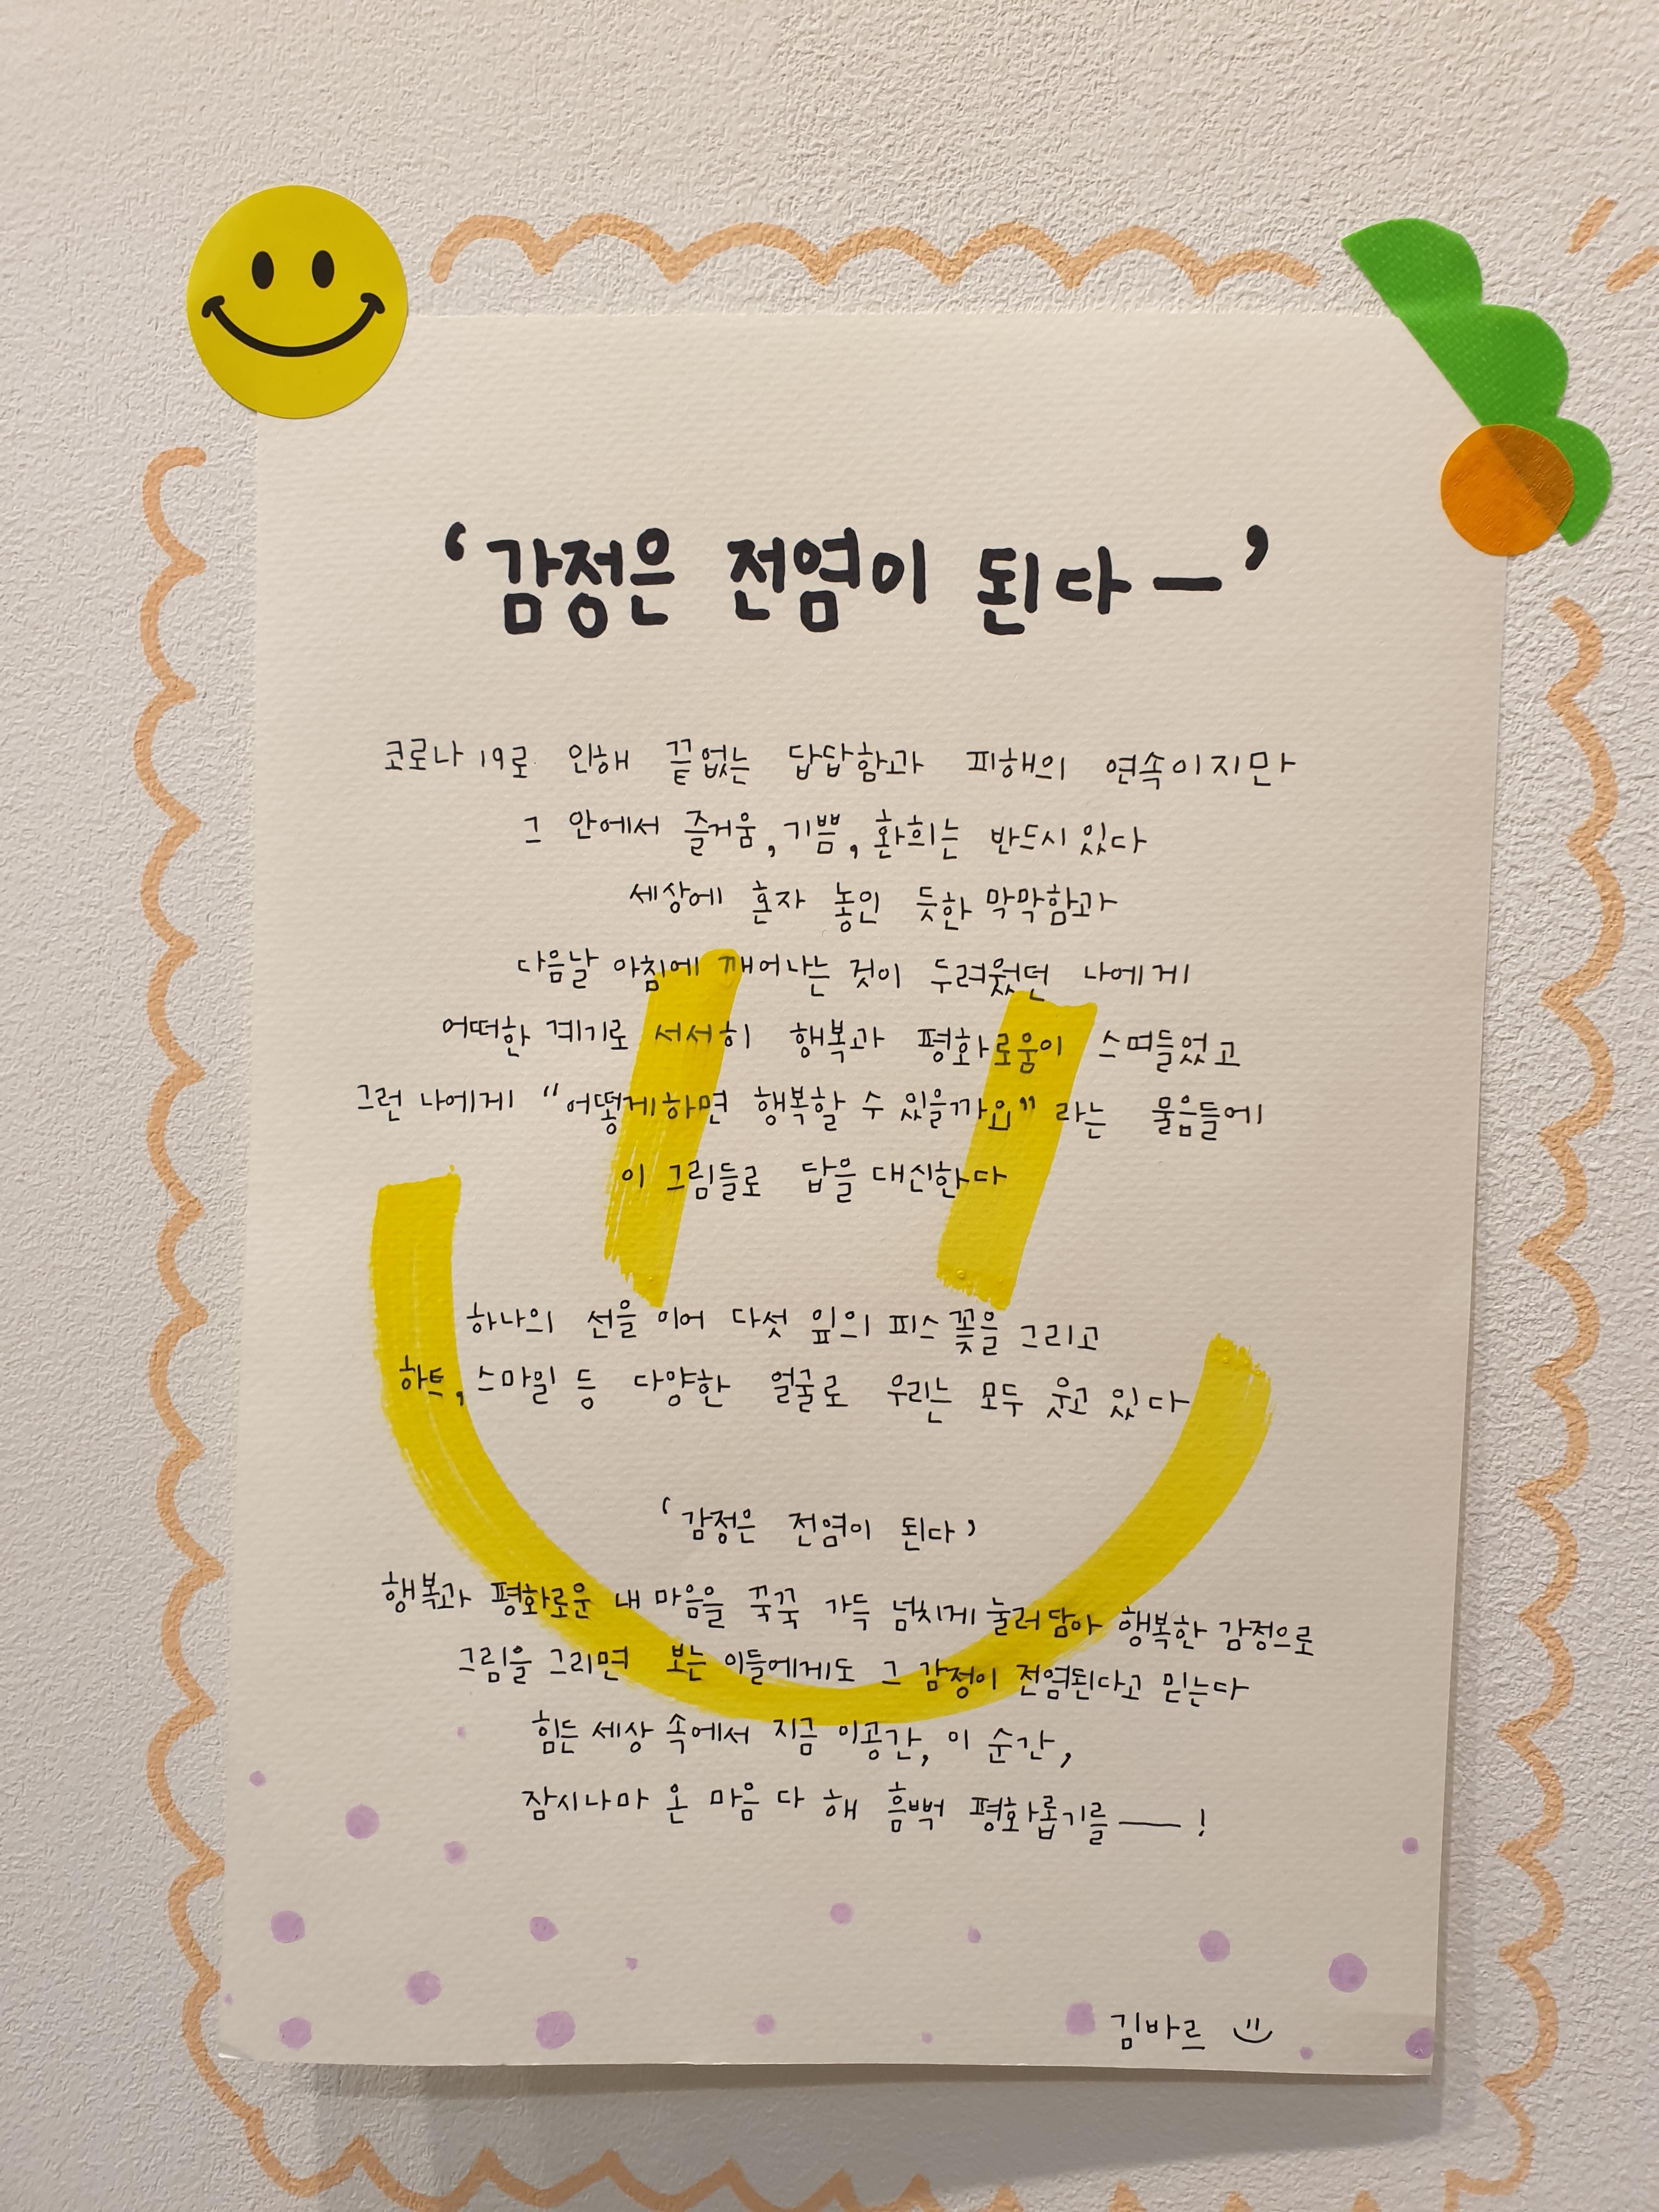 ‘감정은 전염이 된다—’
코로나 19로 인해 끝없는 답답함과 피해의 연속이지만
그 안에서 즐거움, 기쁨, 환희는 반드시 있다
세상에 혼자 놓인 듯한 막막함과
다음날 아침에 깨어나는 것이 두려웠던 나에게
어떠한 계기로 서서히 행복과 평화로움이 스며들었고
그런 나에게 “어떻게하면 행복할 수 있을까요” 라는 물음들에
이 그림들로 답을 대신한다
하나의 선을 이어 다섯 잎의 피스 꽃을 그리고
하트, 스마일 등 다양한 얼굴로 우리는 모두 웃고 있다
‘감정은 전염이 된다’
행복과 평화로운 내 마음을 꾹꾹 가득 넘치게 눌러담아 행복한 감정으로
그림을 그리면 보는 이들에게도 그 감정이 전염된다고 믿는다
힘든 세상 속에서 지금 이공간, 이 순간,
잠시나마 온 마음 다 해 흠뻑 평화롭기를——!
김바르